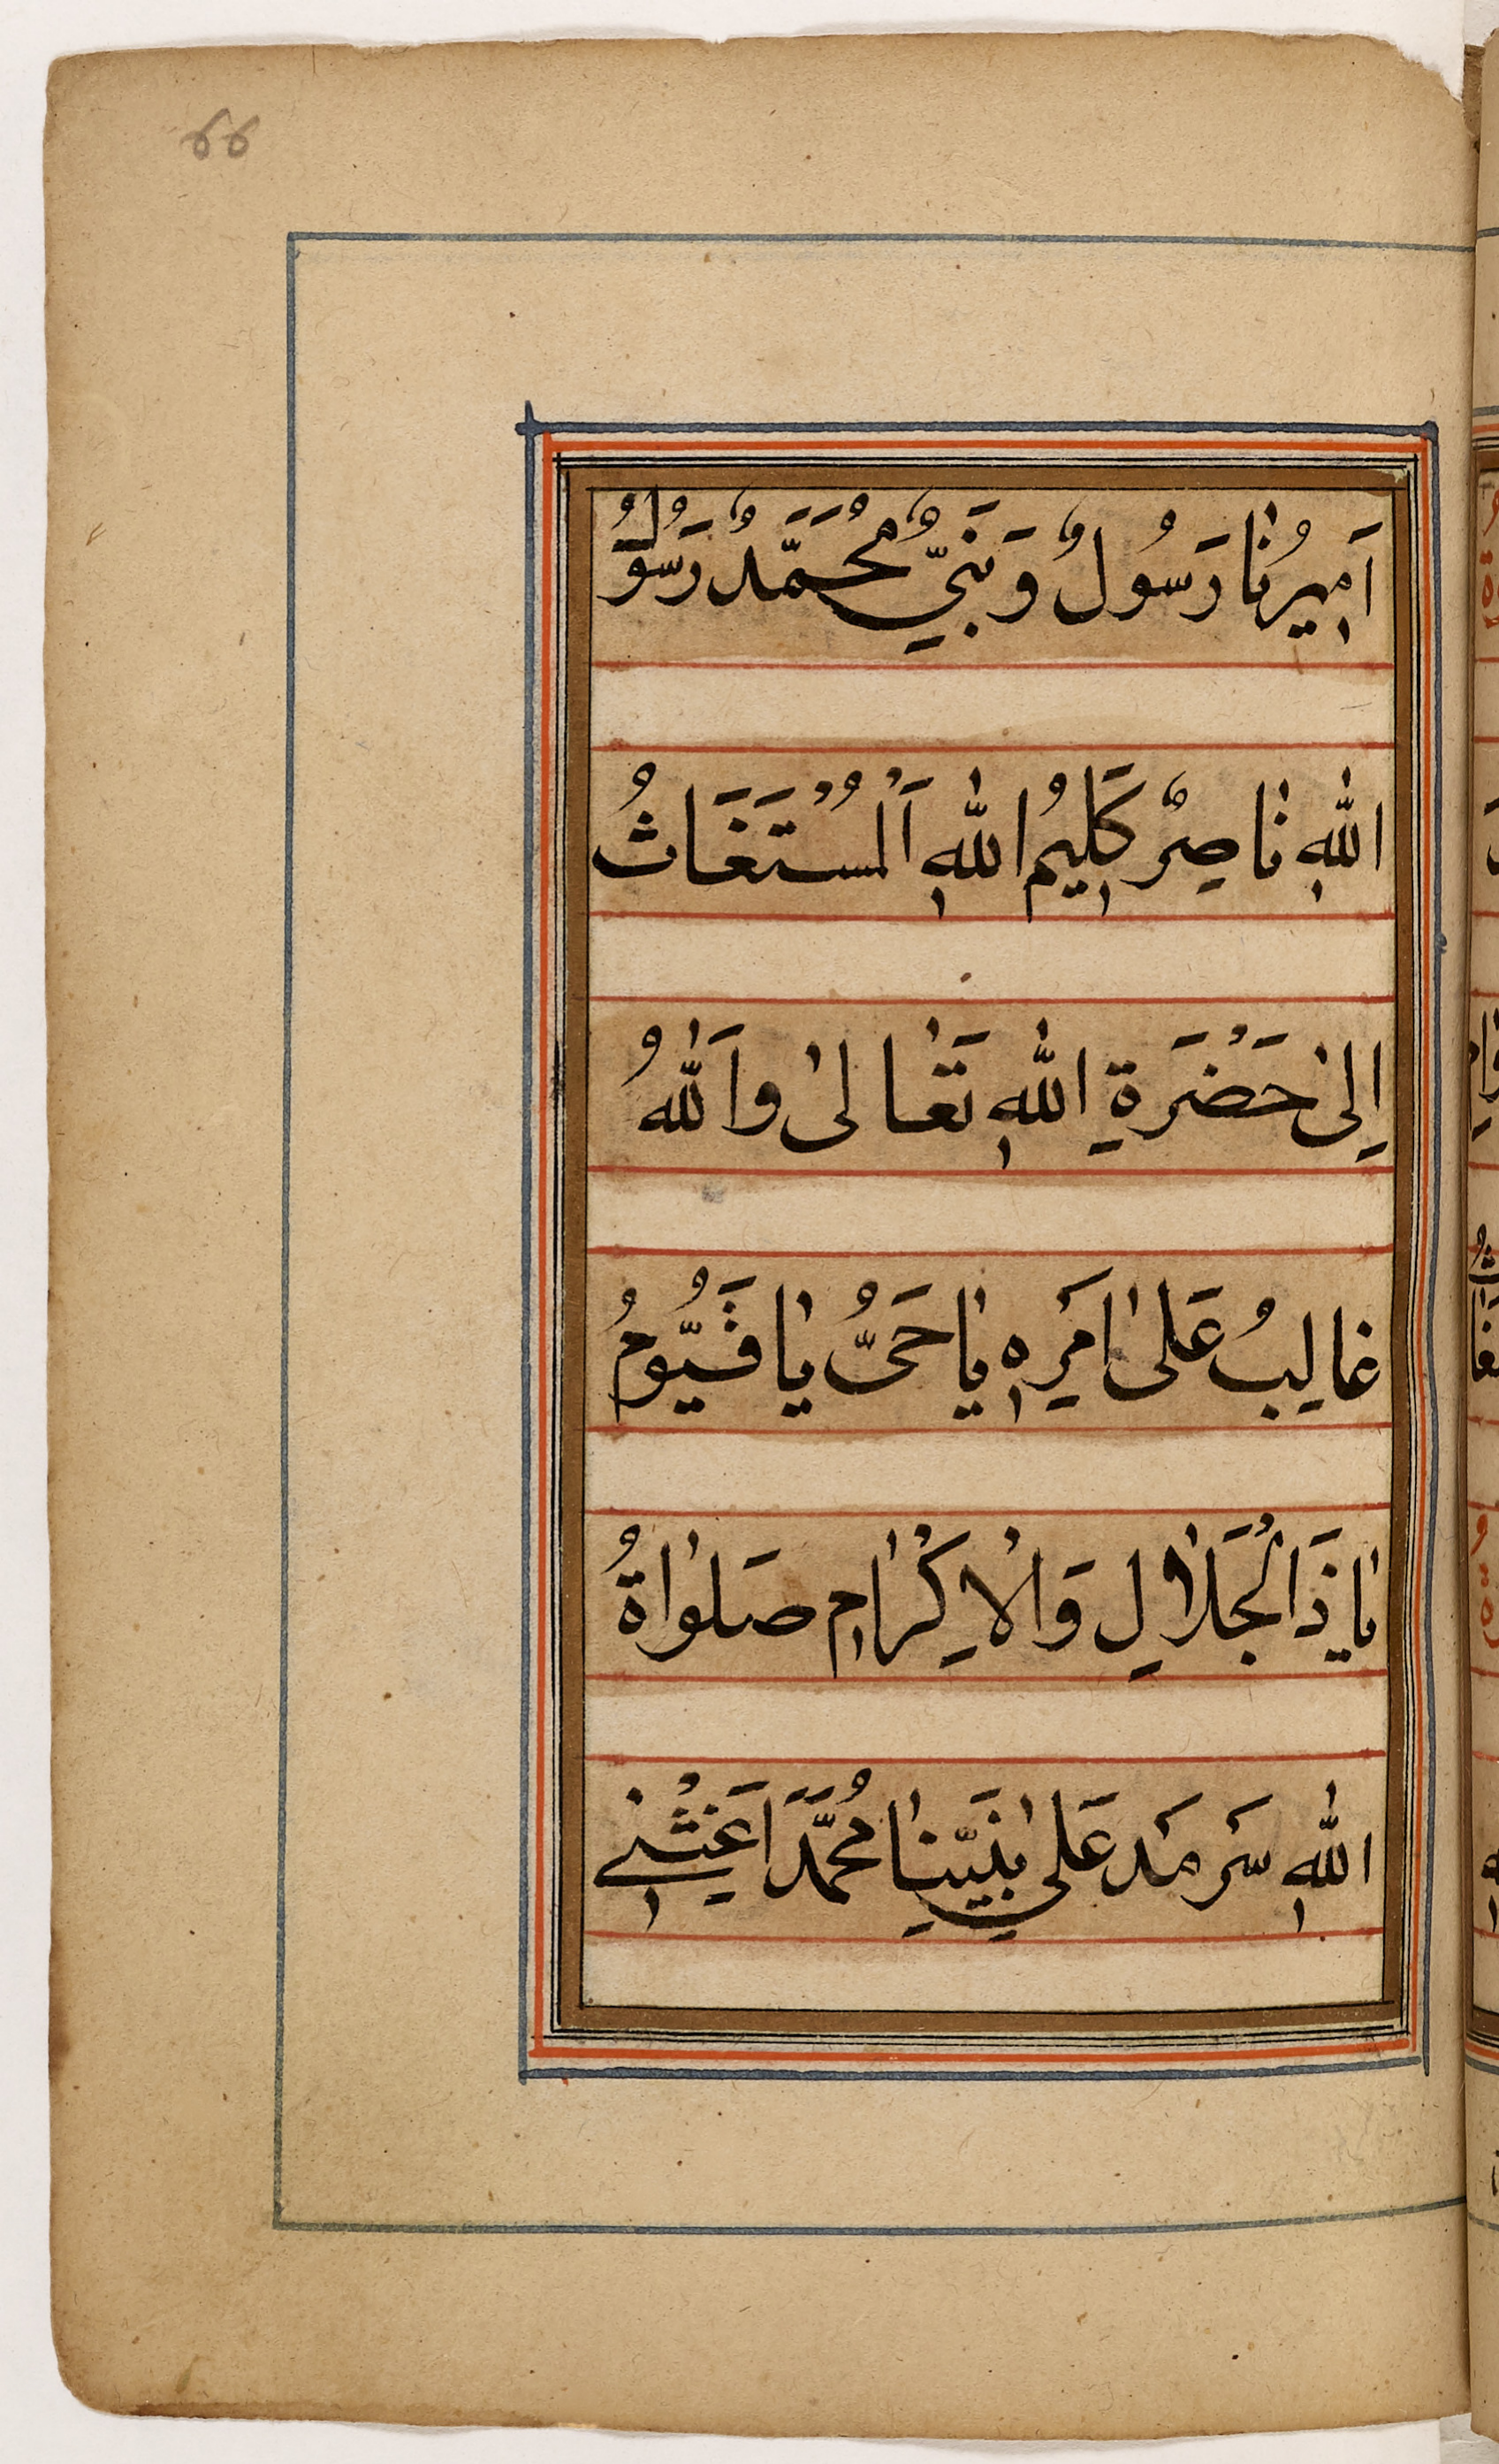 66
اَمِيرُنٰا رَسُولٌ وَنَبِيٌّ مُحَمَّدٌ رَسُوْلُ
اللّٰهِ نٰاصِرٌ كَلِيمُ اللّٰهِ اَلْمُسْتَغَاثُ
اِلىٰ حَضْرَةِ اللّٰهِ تَعٰالىٰ وَاللّٰهُ
غالِبُ عَلىٰ اَمرِهِ يٰا حَىُّ يٰا قَيُّومُ
يٰا ذَا الْجَلٰالِ وَالْاِكْرٰامِ صَلوٰاةُ
اللّٰهِ سَرمَد عَلىٰ نَبِيِّنٰا مُحَمَّدَ اَغِثْنِي